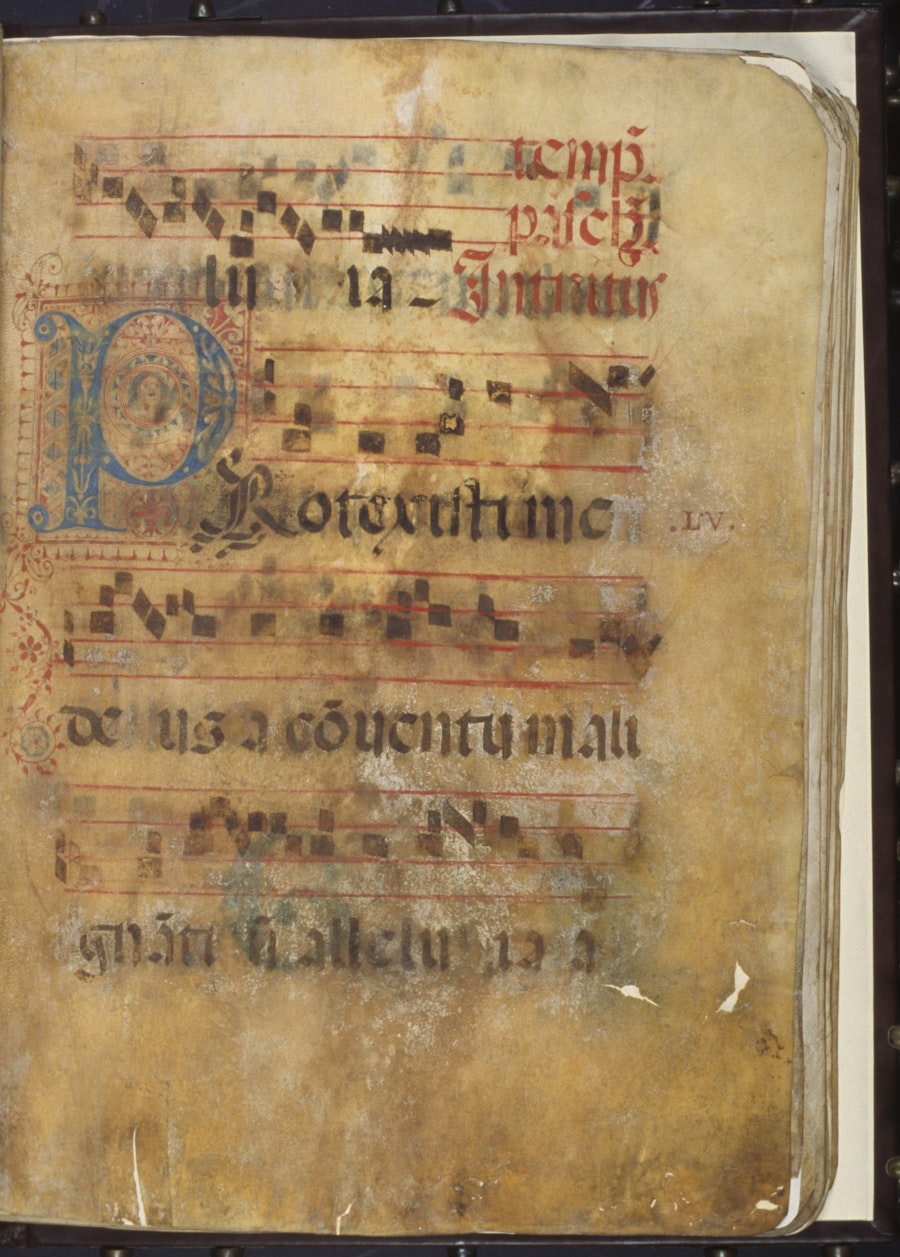 temp̃.
pasch̃.
luia Introitus
PRotexisti me
.LV.
deus a cōventu mali
gnãti ũ alleluia a